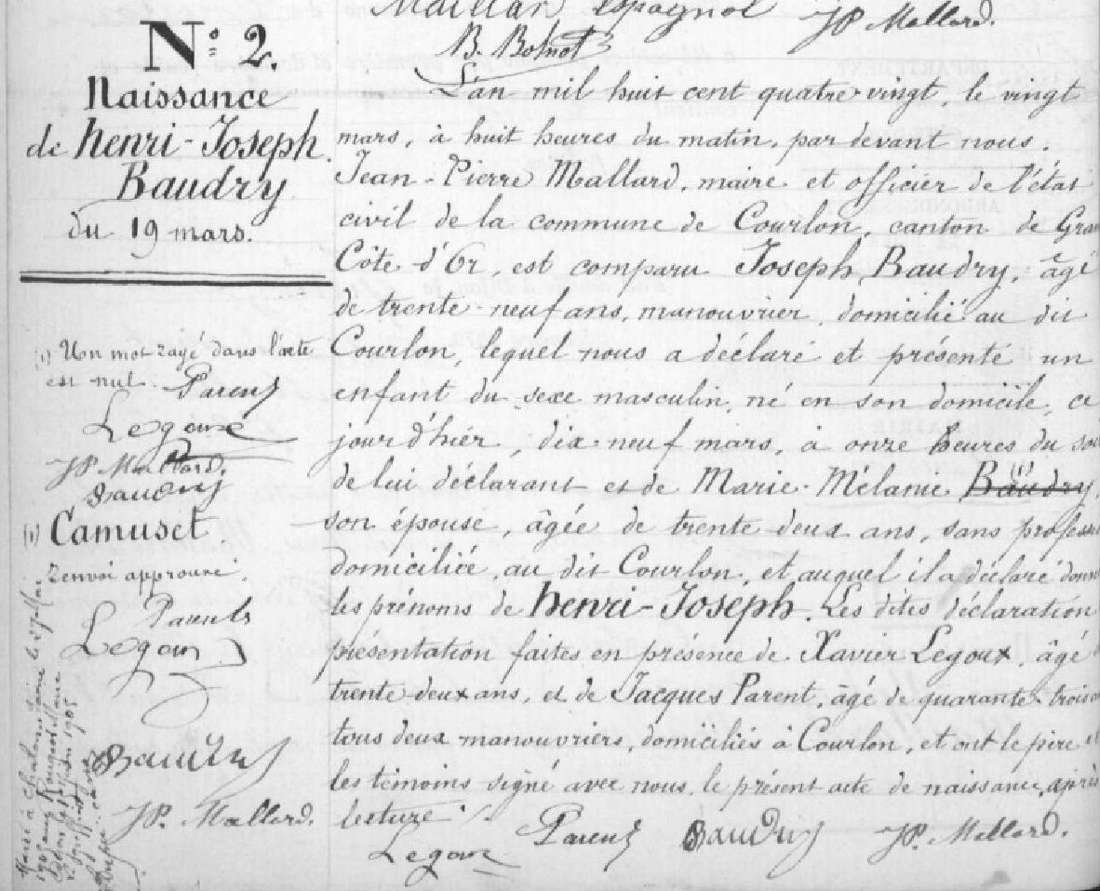 Maillard Espagnol JP Mallard.
B. Bornot
N.º 2.
Naissance
de Henri-Joseph
Baudry
du 19 mars.
(1) Un mot rayé dans l'acte
est nul. Parent
Legoux
JP. Mallard.
Baudry
(1) Camuset.
renvoi approuvé.
Parent
Legoux
Baudry
JP. Mallard.
Marié à Chalons s/Saône le 27 Mai
1905
L'an mil huit cent quatre vingt, le vingt
mars, à huit heures du matin, par devant nous.
Jean-Pierre Mallard, maire et officier de l'état
civil de la commune de Courlon, canton de Gran
Côte-d'Or, est comparu Joseph Baudry, âgé
de trente-neuf ans, manouvrier, domicilié au dit
Courlon, lequel nous a déclaré et présenté un
enfant du sexe masculin, né en son domicile, ce
jour d'hier, dix-neuf mars, à onze heures du soi
de lui déclarant et de Marie-Mélanie Baudry (1)
son épouse, âgée de trente deux ans, sans profess
domiciliée, au dit Courlon, et auquel il a déclaré donn
les prénoms de Henri-Joseph. Les dites déclaration
présentation faites en présence de Xavier Legoux, âgé
trente deux ans, et de Jacques Parent, âgé de quarante-trois
tous deux manouvriers, domiciliés à Courlon, et ont le père et
les témoins signé avec nous, le présent acte de naissance, après
lecture ./.
Legoux Parent Baudry JP. Mallard.